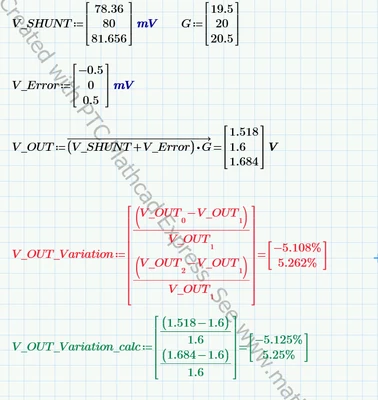 V_SHUNT:=[78.36 80 81.656] mV G:=[19.5 20 20.5]
V_Error:=[−0.5 0 0.5] mV
V_OUT:=(V_SHUNT+V_Error)•G=[1.518 1.6 1.684] V
V_OUT_Variation:=[(V_OUT₀−V_OUT₁)/V_OUT₁ (V_OUT₂−V_OUT₁)/V_OUT₁]=[−5.108% 5.262%]
V_OUT_Variation_calc:=[(1.518−1.6)/1.6 (1.684−1.6)/1.6]=[−5.125% 5.25%]
Created with PTC Mathcad Express. See www.mat